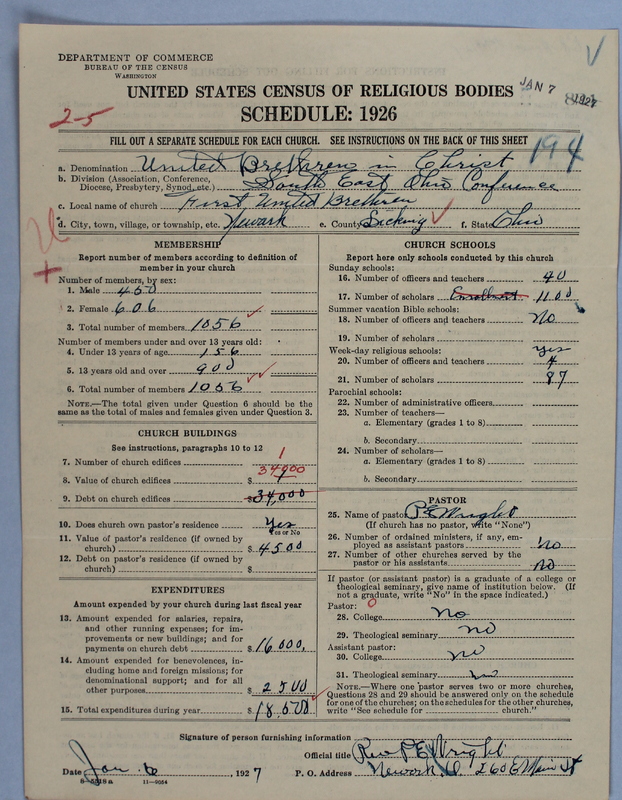 DEPARTMENT OF COMMERCE
BUREAU OF THE CENSUS
WASHINGTON
JAN 7 1927
UNITED STATES CENSUS OF RELIGIOUS BODIES
SCHEDULE: 1926
2-5
194
FILL OUT A SEPARATE SCHEDULE FOR EACH CHURCH. SEE INSTRUCTIONS ON THE BACK OF THIS SHEET
a. Denomination United Brethren in Christ
b. Division (Association, Conference, Diocese, Presbytery, Synod, etc.) South East Ohio Conference
c. Local name of church First United Brethren
d. City, town, village, or township, etc. Newark e. County Licking f. State Ohio
MEMBERSHIP
Report number of members according to definition of
member in your church
Number of members, by sex:
1. Male 450
2. Female 606
3. Total number of members 1056
Number of members under and over 13 years old:
4. Under 13 years of age 156
5. 13 years old and over 900
6. Total number of members 1056
NOTE.—The total given under Question 6 should be the
same as the total of males and females given under Question 3.
CHURCH BUILDINGS
See instructions, paragraphs 10 to 12
7. Number of church edifices 1
34000
8. Value of church edifices $
9. Debt on church edifices $ 34,000
10. Does church own pastor's residence Yes
Yes or No
11. Value of pastor's residence (if owned by
church) $ 4500
12. Debt on pastor's residence (if owned by
church) $
EXPENDITURES
Amount expended by your church during last fiscal year
13. Amount expended for salaries, repairs,
and other running expenses; for im-
provements or new buildings; and for
payments on church debt $ 16000.
14. Amount expended for benevolences, in-
cluding home and foreign missions; for
denominational support; and for all
other purposes $ 2500
15. Total expenditures during year $ 18,500
CHURCH SCHOOLS
Report here only schools conducted by this church
Sunday schools:
16. Number of officers and teachers 40
17. Number of scholars Enrollment 1100
Summer vacation Bible schools:
18. Number of officers and teachers No
19. Number of scholars
Week-day religious schools: yes
20. Number of officers and teachers 4
21. Number of scholars 87
Parochial schools:
22. Number of administrative officers
23. Number of teachers—
a. Elementary (grades 1 to 8)
b. Secondary
24. Number of scholars—
a. Elementary (grades 1 to 8)
b. Secondary
PASTOR
25. Name of pastor P E Wright
(If church has no pastor, write "None")
26. Number of ordained ministers, if any, em-
ployed as assistant pastors No
27. Number of other churches served by the
pastor or his assistants No
If pastor (or assistant pastor) is a graduate of a college or
theological seminary, give name of institution below. (If
not a graduate, write "No" in the space indicated.)
Pastor: 0
28. College No
29. Theological seminary no
Assistant pastor:
30. College no
31. Theological seminary no
NOTE.—Where one pastor serves two or more churches,
Questions 28 and 29 should be answered only on the schedule
for one of the churches; on the schedules for the other churches,
write "See schedule for church."
Signature of person furnishing information
Official title Rev P E Wright
Date Jan. 6 1927 P. O. Address Newark, O. 260 E Main St
8-5518a 11-9054